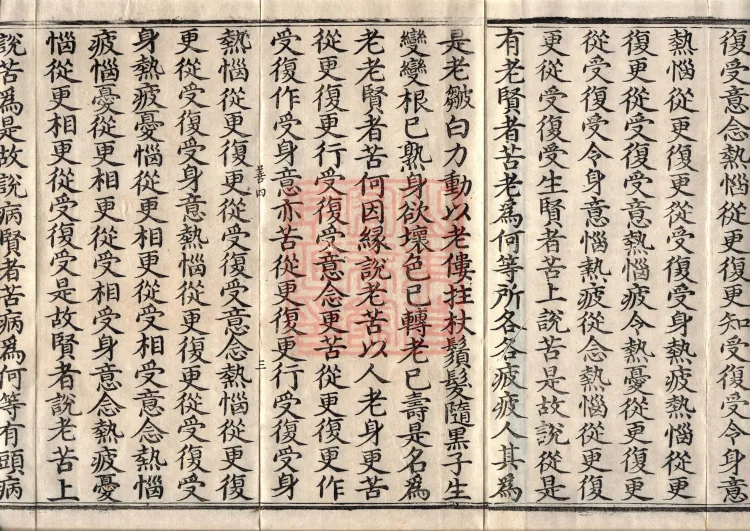 復受意念熱惱從更復更知受復受令身意
熱惱從更復更從受復受身熱疲熱惱從更
復更從受復受意熱惱疲令熱憂從更復更
從受復受令身意惱熱疲從念熱惱從更復
更從受復受生賢者苦上說苦是故說從是
有老賢者苦老為何等所各各疲疲人其為
是老皺白力動以老僂拄杖鬚髮隨黑子生
變變根已熟身欲壞色已轉老已壽是名為
老老賢者苦何因緣說老苦以人老身更苦
從更復更行受復受意念更苦從更復更作
受復作受身意亦苦從更復更行受復受身
三
熱惱從更復更從受復受意念熱惱從更復
更從受復受身意熱惱從更復更從受復受
身熱疲憂惱從更相更從受相受意念熱惱
疲惱憂從更相更從受相受身意念熱疲憂
惱從更相更從受復受是故賢者說老苦上
說苦為是故說病賢者苦病為何等有頭病